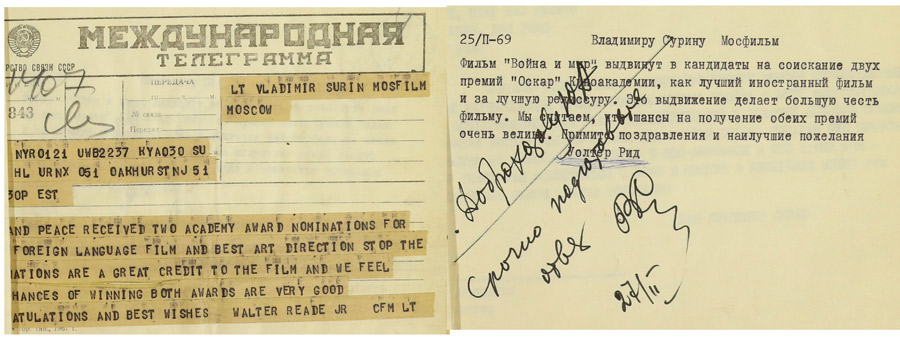 МЕЖДУНАРОДНАЯ
ТЕЛЕГРАММА
РСТВО СВЯЗИ СССР
1407
ПЕРЕДАЧА
843
№ связи
Передал
LT VLADIMIR SURIN MOSFILM
MOSCOW
NYR0121 UWB2237 KYA030 SU
HL URNX 051 OAKHURSTNJ 51
30P EST
AND PEACE RECEIVED TWO ACADEMY AWARD NOMINATIONS FOR
FOREIGN LANGUAGE FILM AND BEST ART DIRECTION STOP THE
NATIONS ARE A GREAT CREDIT TO THE FILM AND WE FEEL
HANCES OF WINNING BOTH AWARDS ARE VERY GOOD
ATULATIONS AND BEST WISHES WALTER READE JR CFM LT
25/II-69 Владимиру Сурину Мосфильм
Фильм "Война и мир" выдвинут в кандидаты на соискание двух
премий "Оскар" Киноакадемии, как лучший иностранный фильм
и за лучшую режиссуру. Это выдвижение делает большую честь
фильму. Мы считаем, что шансы на получение обеих премий
очень велики. Примите поздравления и наилучшие пожелания
Уолтер Рид
срочно подготовьте
27/II